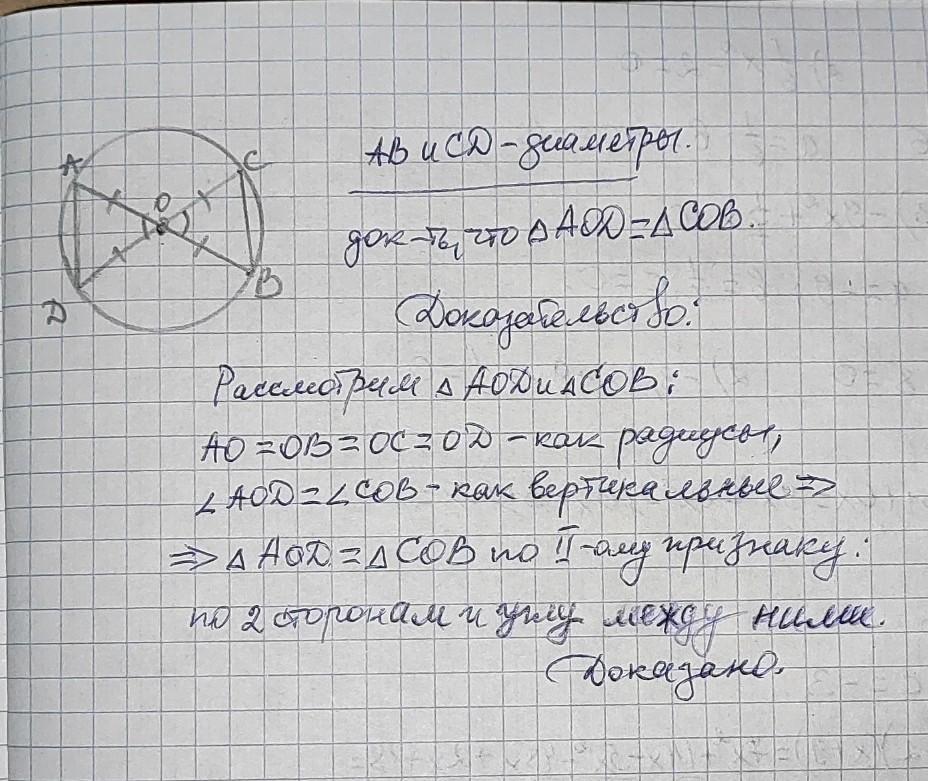 A
C
O
B
D
AB и CD - диаметры.
док-ть, что △ AOD = △ COB.
Доказательство:
Рассмотрим △ AOD и △ COB:
AO = OB = OC = OD - как радиусы,
∠ AOD = ∠ COB - как вертикальные ⇒
⇒ △ AOD = △ COB по II-ому признаку:
по 2 сторонам и углу между ними.
Доказано.